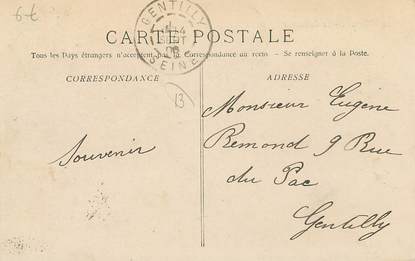 6 €
GENTILLY
SEINE
CARTE POSTALE
Tous les Pays étrangers n'acceptent pas la Correspondance au recto - Se renseigner à la Poste.
CORRESPONDANCE
ADRESSE
13
Souvenir
Monsieur Eugène
Remond 9 Rue
du Pac
Gentilly